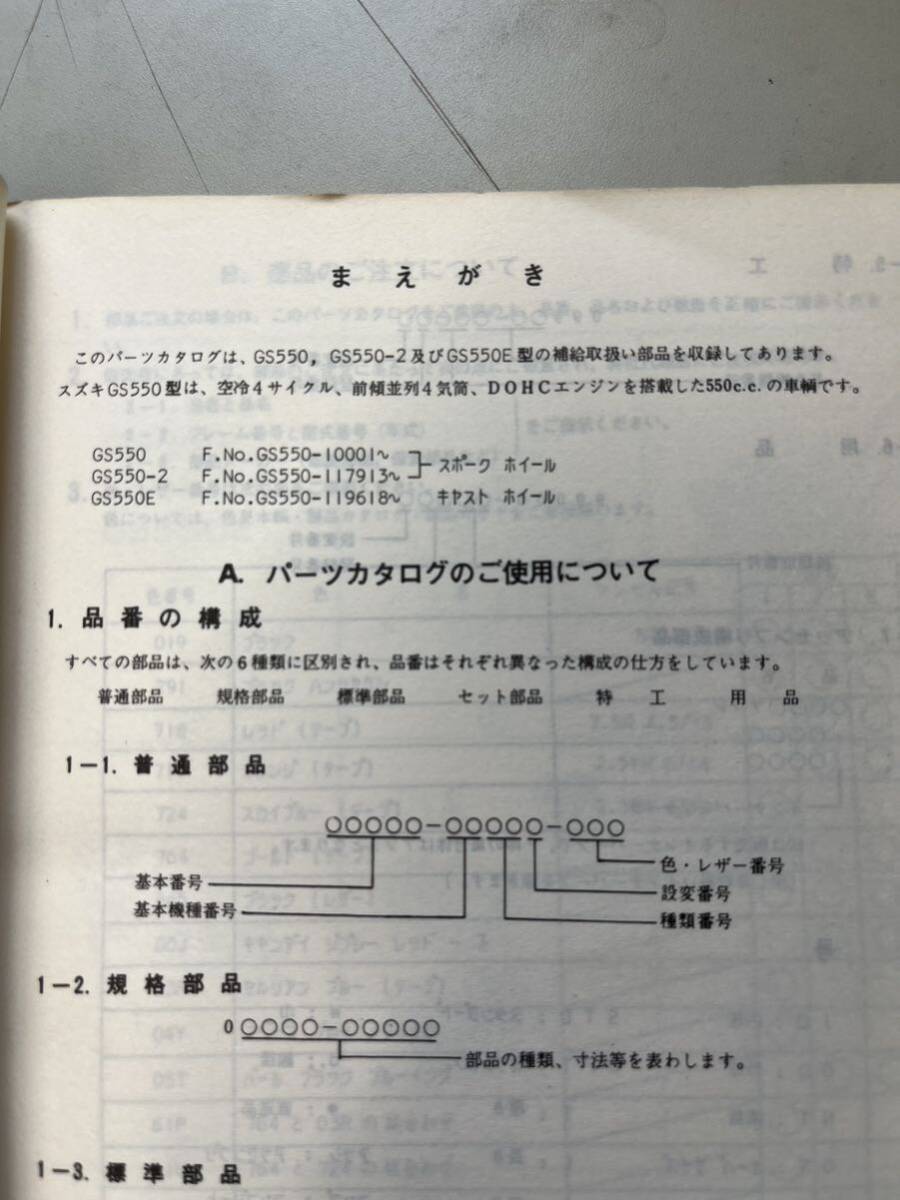 まえがき
このパーツカタログは、GS550, GS550-2及びGS550E型の補給取扱い部品を収録してあります。
スズキGS550型は、空冷4サイクル、前傾並列4気筒、DOHCエンジンを搭載した550c.c.の車輌です。
GS550 F.No.GS550-10001~
スポーク ホイール
GS550-2 F.No.GS550-117913~
GS550E F.No.GS550-119618~ キャスト ホイール
A. パーツカタログのご使用について
1. 品番の構成
すべての部品は、次の6種類に区別され、品番はそれぞれ異なった構成の仕方をしています。
普通部品 規格部品 標準部品 セット部品 特工 用品
1-1. 普通部品
○○○○○-○○○○○-○○○
色・レザー番号
基本番号
設変番号
基本機種番号
種類番号
1-2. 規格部品
0○○○○-○○○○○
部品の種類、寸法等を表わします。
1-3. 標準部品